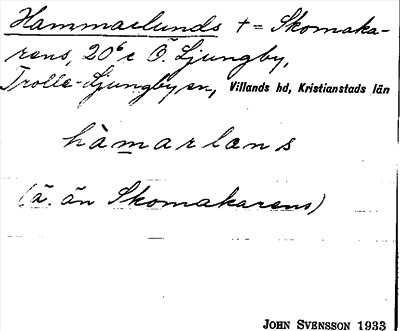 Hammarlunds † = Skomaka-
rens, 20⁶ c Ö. Ljungby,
Trolle-Ljungby sn, Villands hd, Kristianstads län
hàmarlαns
(ä. än Skomakarens)
JOHN SVENSSON 1933